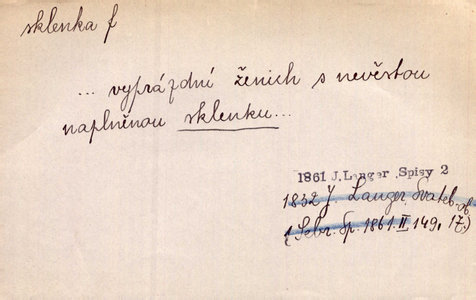 sklenka f
... vyprázdní ženich s nevěstou
naplněnou sklenku...
1861 J.Langer Spisy 2
1832 J. Langer, Svateb. ob.
(Sebr. Sp. 1861. II 149, 17.)